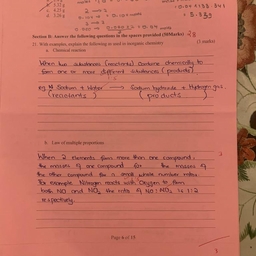 b. 1.25 g
c. 6.25 g
d. 3.26 g
Section B: Answer the following questions in the spaces provided (30Marks)
21. With examples, explain the following as used in inorganic chemistry
(3 marks)
a. Chemical reaction
When two substances (reactants) combine chemically to
form one or more different substances (products)
eg, Sodium + Water → Sodium hydroxide + Hydrogen gas
(reactants) (products)
b. Law of multiple proportions
When 2 elements form more than one compound,
the masses of one compound for the masses of
the other compound are in small whole number ratios.
For example Nitrogen reacts with Oxygen to form
both NO and NO₂ the ratio of NO : NO₂ is 1:2
respectively.
Page 6 of 13